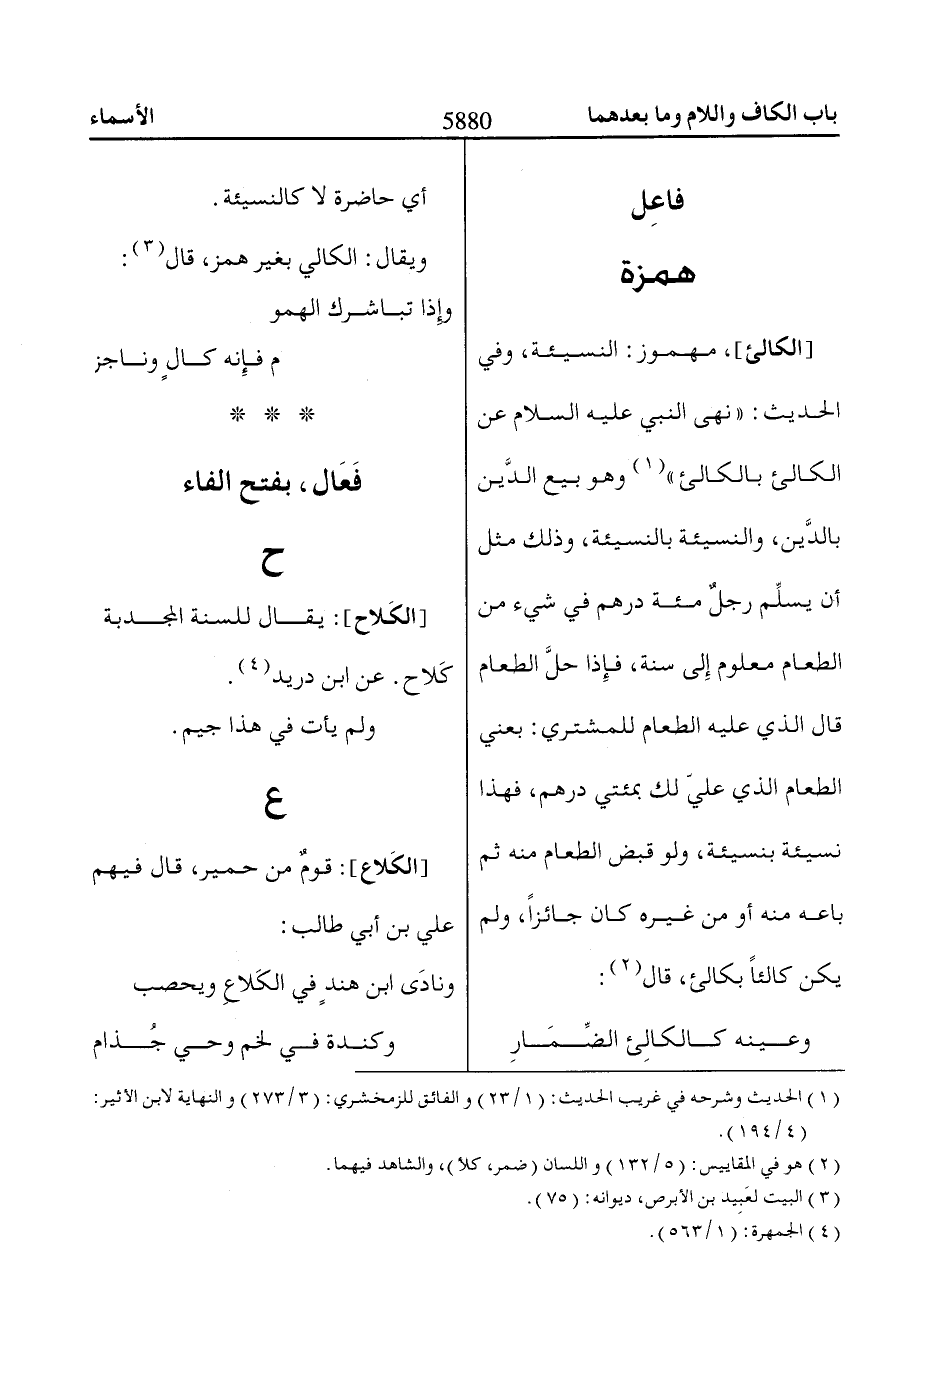 باب الكاف واللام وما بعدهما
5880
الأسماء
فاعِل
همزة
[الكالئ]، مهموز: النسيئة، وفي
الحديث: «نهى النبي عليه السلام عن
الكالئ بالكالئ»(١) وهو بيع الدَّين
بالدَّين، والنسيئة بالنسيئة، وذلك مثل
أن يسلِّم رجلٌ مئة درهم في شيء من
الطعام معلوم إلى سنة، فإذا حلَّ الطعام
قال الذي عليه الطعام للمشتري: بعني
الطعام الذي عليّ لك بمئتي درهم، فهذا
نسيئة بنسيئة، ولو قبض الطعام منه ثم
باعه منه أو من غيره كان جائزاً، ولم
يكن كالئاً بكالئ، قال(٢):
وعينه كالكالِئ الضِّمَارِ
أي حاضرة لا كالنسيئة.
ويقال: الكالي بغير همز، قال(٣):
وإذا تباشرك الهمو
م فإنه كالٍ وناجز
* * *
فَعَال، بفتح الفاء
ح
[الكَلاح]: يقال للسنة المجدبة
كَلاح. عن ابن دريد(٤).
ولم يأت في هذا جيم.
ع
[الكَلاع]: قومٌ من حمير، قال فيهم
علي بن أبي طالب:
ونادَى ابن هندٍ في الكَلاعِ ويحصب
وكندة في لخم وحي جُذام
(١) الحديث وشرحه في غريب الحديث: (٢٣/١) و الفائق للزمخشري: (٢٧٣/٣) و النهاية لابن الأثير:
(١٩٤/٤).
(٢) هو في المقاييس: (١٣٢/٥) و اللسان (ضمر، كلأ)، والشاهد فيهما.
(٣) البيت لعَبِيد بن الأبرص، ديوانه: (٧٥).
(٤) الجمهرة: (٥٦٣/١).